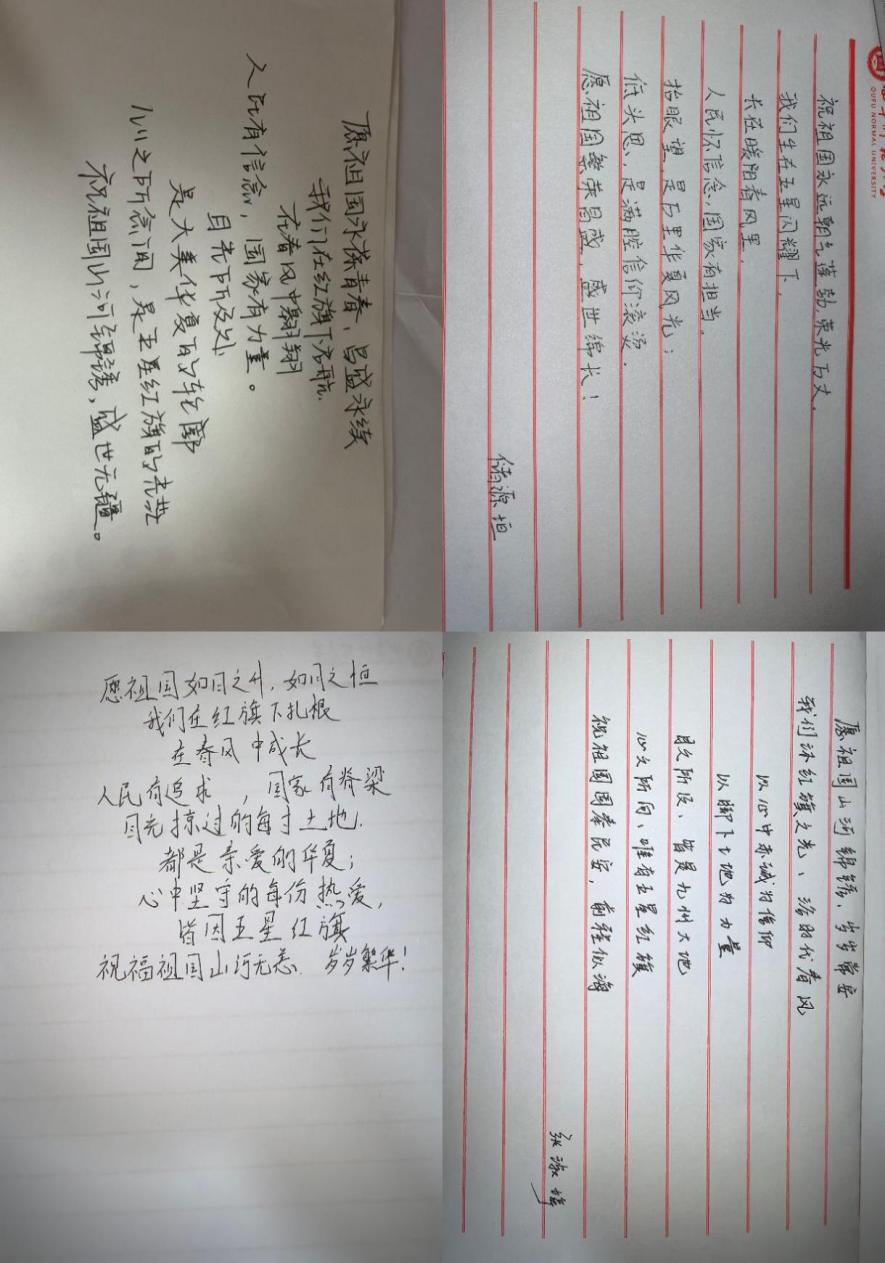 愿祖国永葆青春，昌盛永续
我们在红旗下启航
在春风中翱翔
人民有信念，国家有力量。
目光所及处
是大美华夏的轮廓
心之所念间，是五星红旗的光芒
祝祖国山河锦绣，盛世无疆。
QUFU NORMAL UNIVERSITY
祝祖国永远朝气蓬勃，荣光万丈，
我们生在五星闪耀下，
长在暖阳春风里，
人民怀信念，国家有担当，
抬眼望，是万里华夏风光；
低头思，是满腔信仰滚烫，
愿祖国繁荣昌盛，盛世绵长！
储源坦
愿祖国如日之升，如月之恒
我们在红旗下扎根
在春风中成长
人民有追求，国家有脊梁
目光掠过的每寸土地，
都是亲爱的华夏；
心中坚守的每份热爱，
皆因五星红旗
祝福祖国山河无恙，岁岁繁华！
愿祖国山河锦绣、岁岁常安
我们沐红旗之光、浴时代春风
以心中赤诚为信仰
以脚下土地为力量
目之所及、皆是九州大地
心之所向、唯有五星红旗
祝祖国国泰民安，前程似海
张淑婷